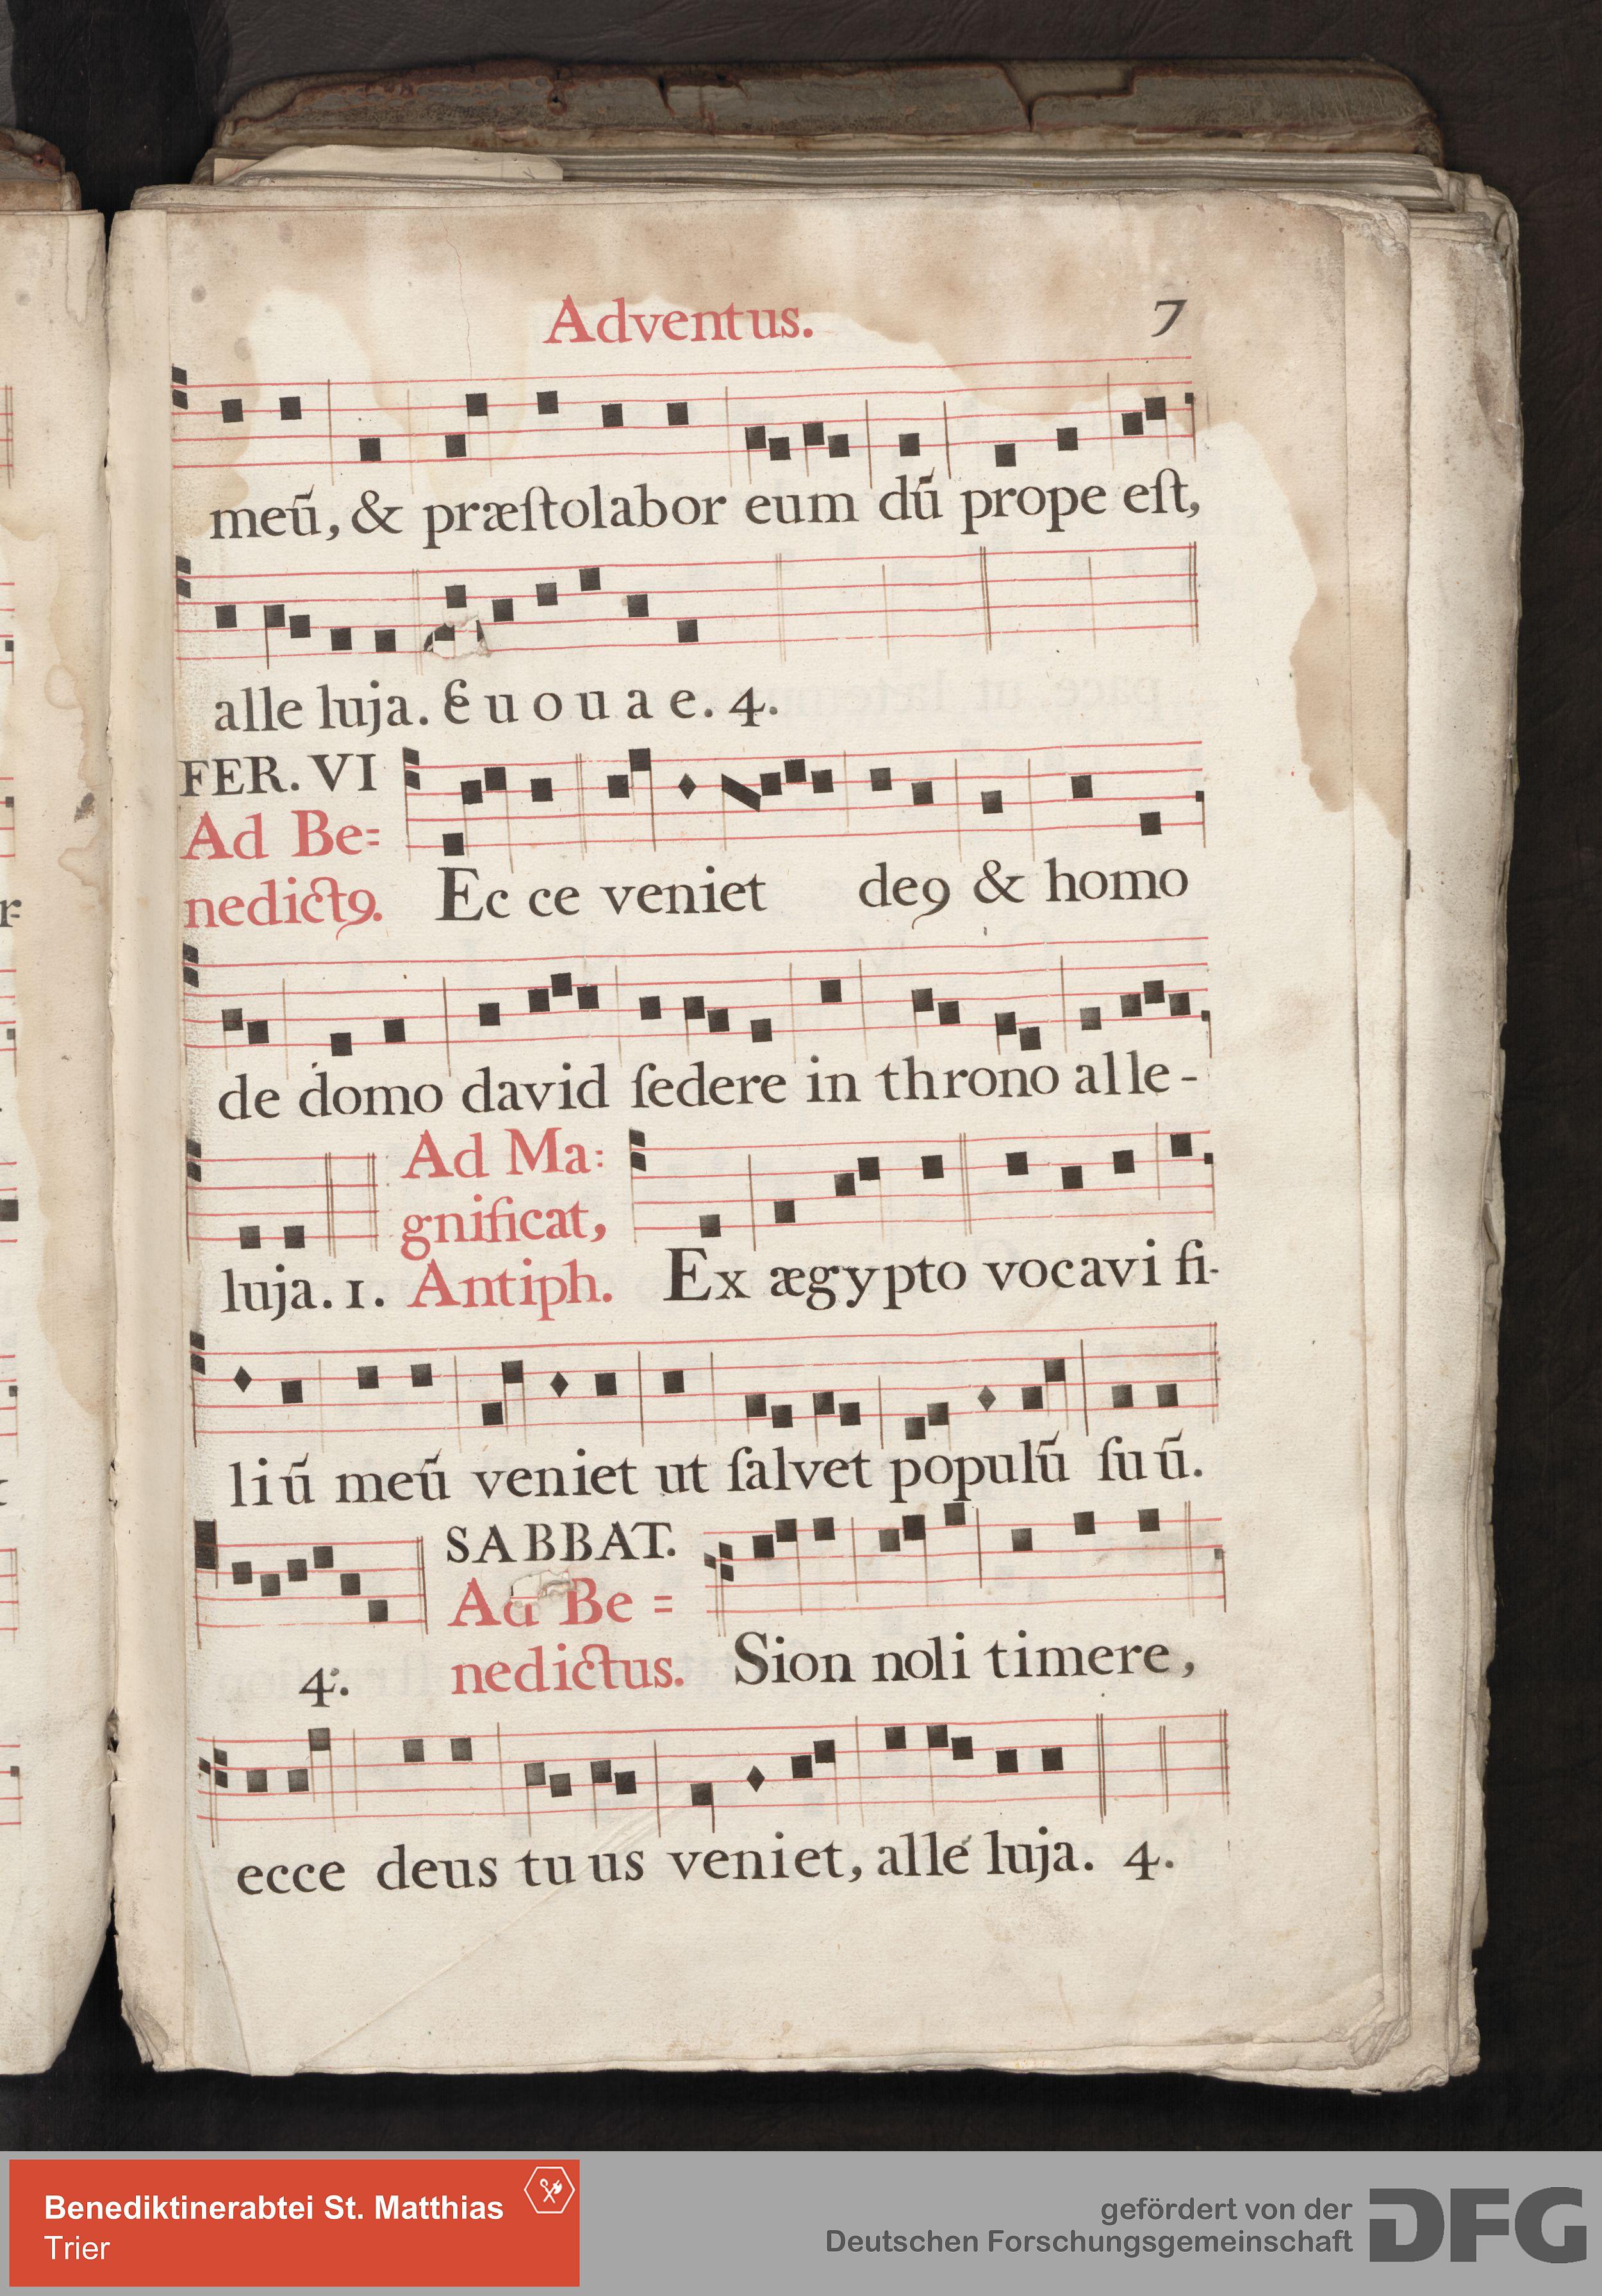 Adventus. 7
meũ, & præſtolabor eum dũ prope eſt,
alle luja. E u o u a e. 4.
FER. VI
Ad Be=
nedictꝰ. Ec ce veniet deꝰ & homo
de domo david ſedere in throno alle-
Ad Ma:
gnificat,
luja. 1. Antiph. Ex ægypto vocavi fi-
liũ meũ veniet ut ſalvet populũ ſuũ.
SABBAT.
Ad Be =
4. nedictus. Sion noli timere,
ecce deus tuus veniet, alle luja. 4.
Benediktinerabtei St. Matthias
Trier
gefördert von der
Deutschen Forschungsgemeinschaft
DFG